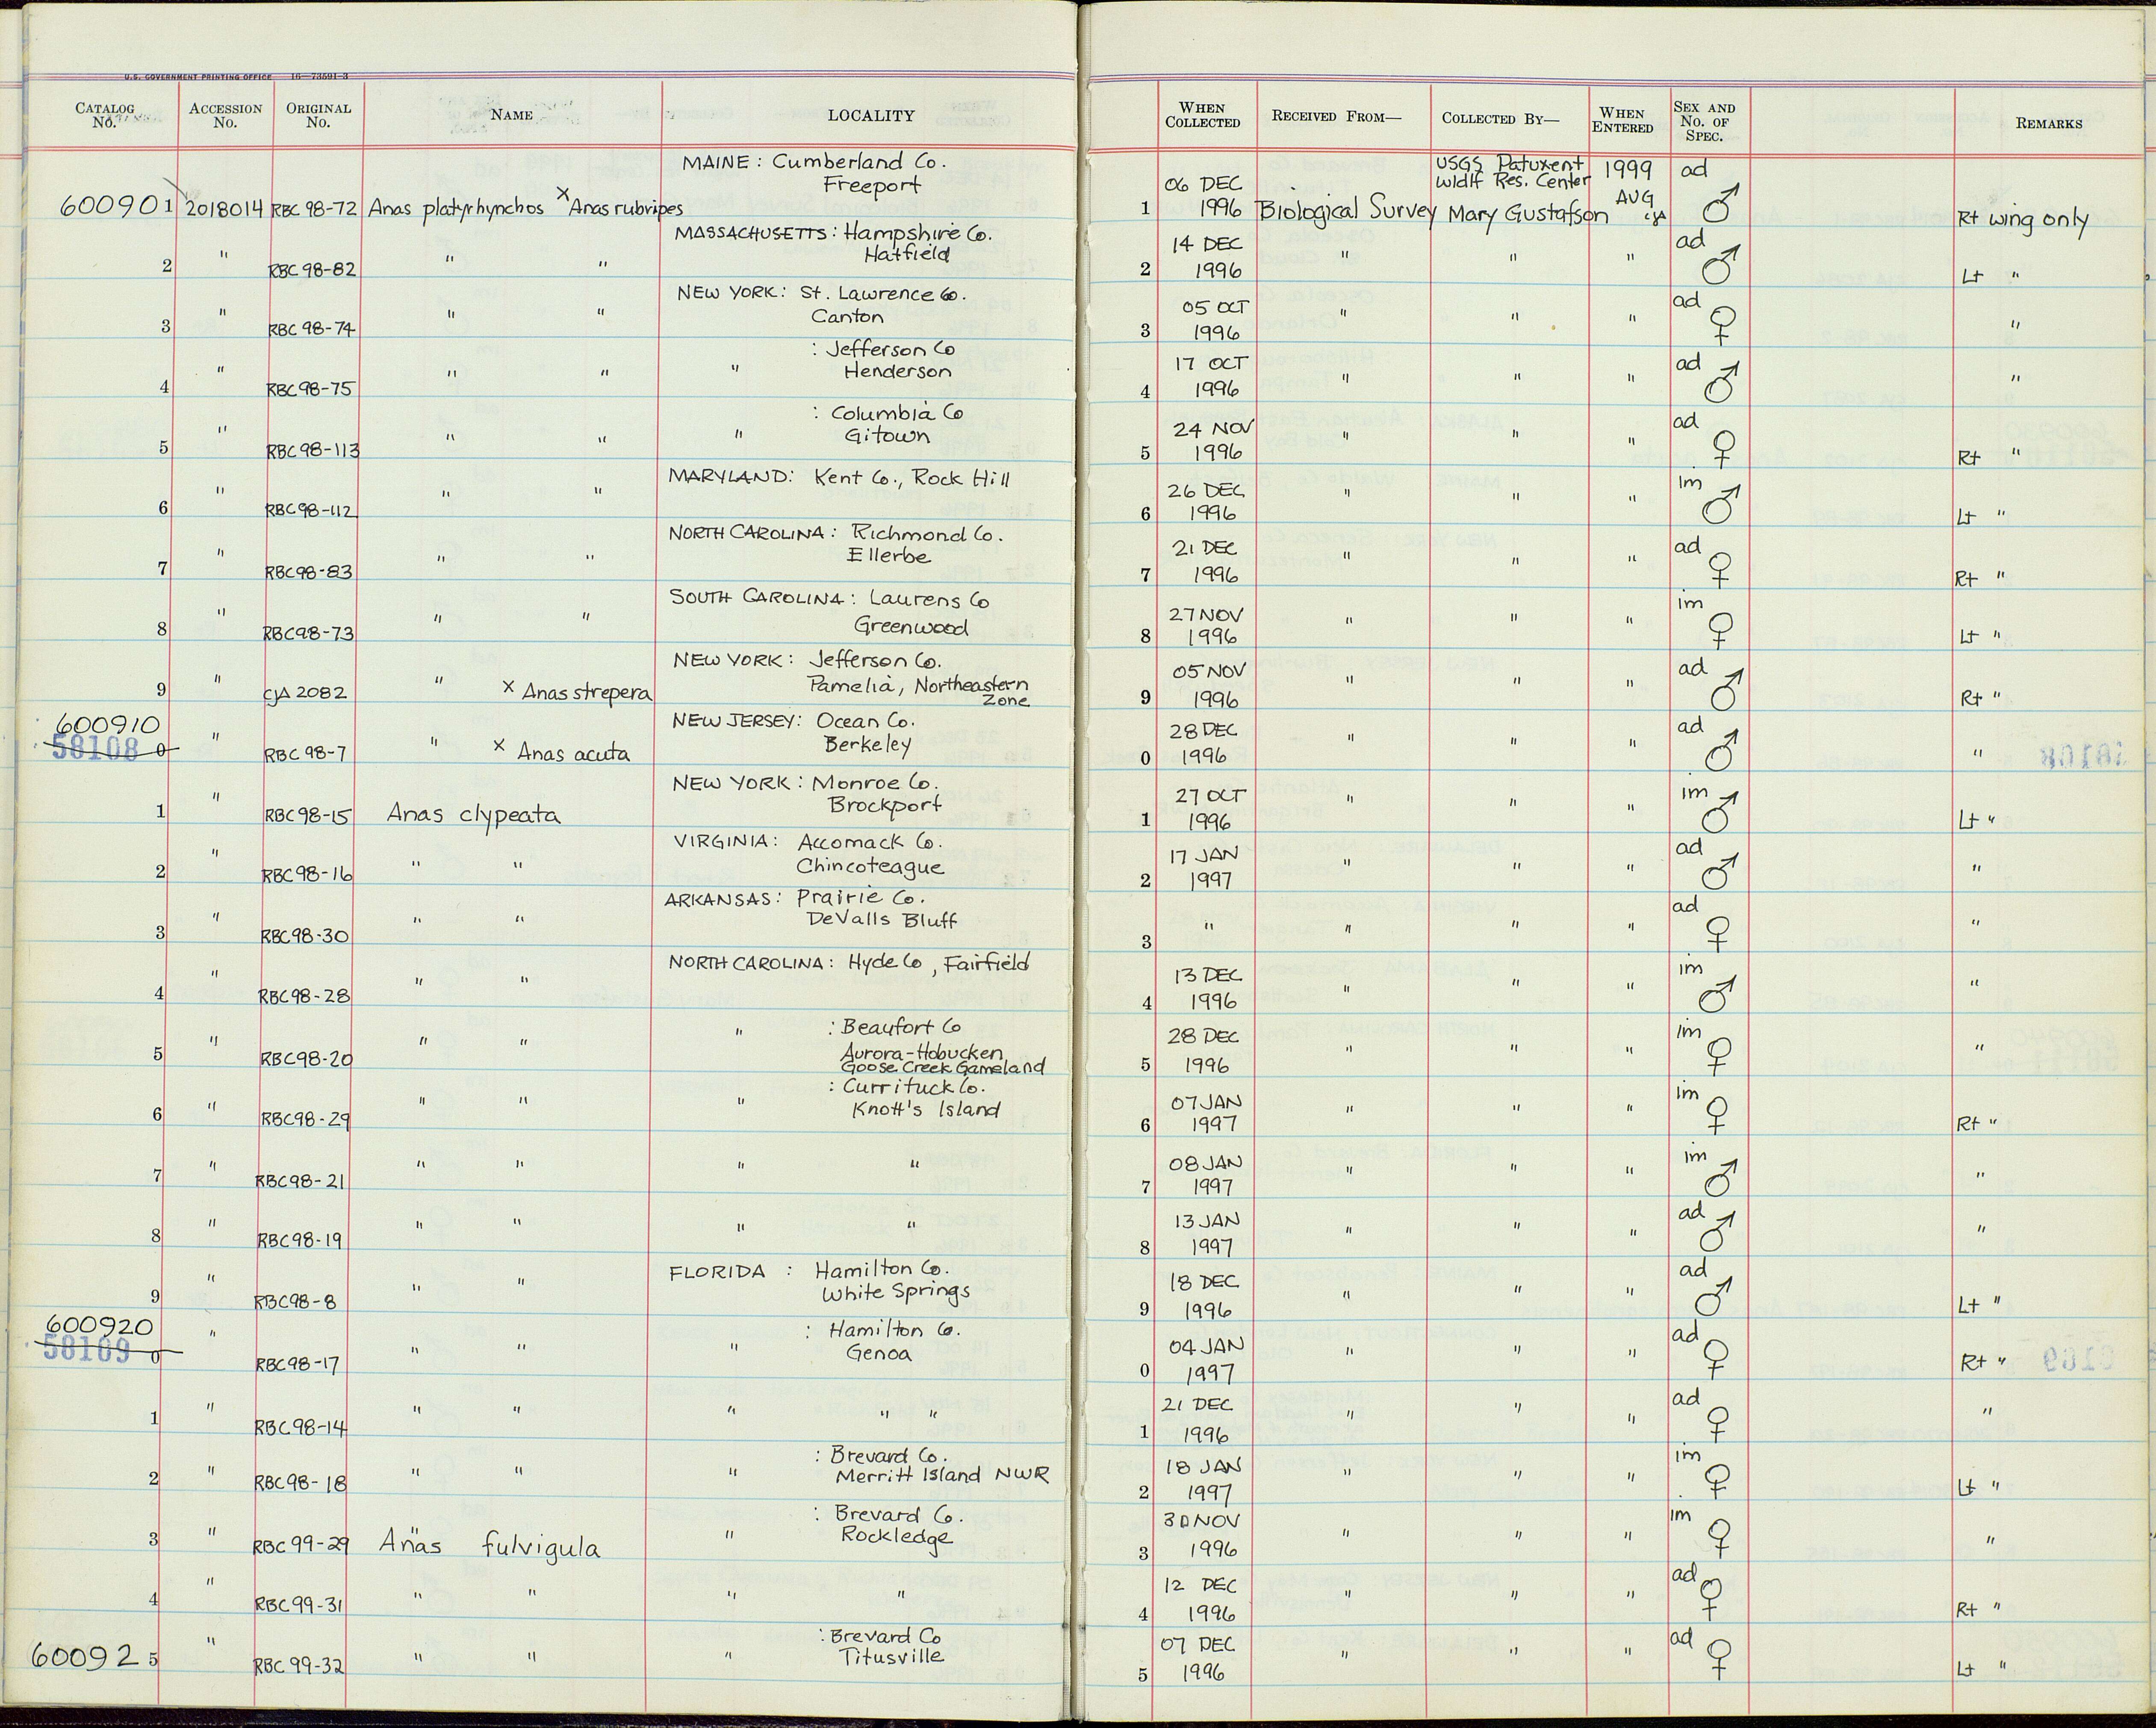 U.S. GOVERNMENT PRINTING OFFICE 16—73591-3
CATALOG No. ACCESSION No. ORIGINAL No. NAME LOCALITY WHEN COLLECTED RECEIVED FROM— COLLECTED BY— WHEN ENTERED SEX AND No. OF SPEC. REMARKS
600901 2018014 RBC 98-72 Anas platyrhynchos x Anas rubripes MAINE: Cumberland Co. Freeport 1 06 DEC 1996 Biological Survey USGS Patuxent Wldlf Res. Center Mary Gustafson 1999 AUG ad ♂ Rt wing only
2 " RBC 98-82 " " MASSACHUSETTS: Hampshire Co. Hatfield 2 14 DEC 1996 " " " ad ♂ Lt "
3 " RBC 98-74 " " NEW YORK: St. Lawrence Co. Canton 3 05 OCT 1996 " " " ad ♀ "
4 " RBC 98-75 " " " : Jefferson Co Henderson 4 17 OCT 1996 " " " ad ♂ "
5 " RBC 98-113 " " " : Columbia Co Gitown 5 24 NOV 1996 " " " ad ♀ Rt "
6 " RBC 98-112 " " MARYLAND: Kent Co., Rock Hill 6 26 DEC 1996 " " " im ♂ Lt "
7 " RBC 98-83 " " NORTH CAROLINA: Richmond Co. Ellerbe 7 21 DEC 1996 " " " ad ♀ Rt "
8 " RBC 98-73 " " SOUTH CAROLINA: Laurens Co Greenwood 8 27 NOV 1996 " " " im ♀ Lt "
9 " CJA 2082 " x Anas strepera NEW YORK: Jefferson Co. Pamelia, Northeastern Zone 9 05 NOV 1996 " " " ad ♂ Rt "
600910 58108 0 " RBC 98-7 " x Anas acuta NEW JERSEY: Ocean Co. Berkeley 0 28 DEC 1996 " " " ad ♂ "
1 " RBC 98-15 Anas clypeata NEW YORK: Monroe Co. Brockport 1 27 OCT 1996 " " " im ♂ Lt "
2 " RBC 98-16 " " VIRGINIA: Accomack Co. Chincoteague 2 17 JAN 1997 " " " ad ♂ "
3 " RBC 98-30 " " ARKANSAS: Prairie Co. DeValls Bluff 3 " " " " ad ♀ "
4 " RBC 98-28 " " NORTH CAROLINA: Hyde Co, Fairfield 4 13 DEC 1996 " " " im ♂ "
5 " RBC 98-20 " " " : Beaufort Co Aurora-Hobucken Goose Creek Gameland 5 28 DEC 1996 " " " im ♀ "
6 " RBC 98-29 " " " : Currituck Co. Knott's Island 6 07 JAN 1997 " " " im ♀ Rt "
7 " RBC 98-21 " " " " 7 08 JAN 1997 " " " im ♂ "
8 " RBC 98-19 " " " " 8 13 JAN 1997 " " " ad ♂ "
9 " RBC 98-8 " " FLORIDA : Hamilton Co. White Springs 9 18 DEC 1996 " " " ad ♂ Lt "
600920 58109 0 " RBC 98-17 " " " : Hamilton Co. Genoa 0 04 JAN 1997 " " " ad ♀ Rt "
1 " RBC 98-14 " " " " " 1 21 DEC 1996 " " " ad ♀ "
2 " RBC 98-18 " " " : Brevard Co. Merritt Island NWR 2 18 JAN 1997 " " " im ♀ Lt "
3 " RBC 99-29 Anas fulvigula " : Brevard Co. Rockledge 3 30 NOV 1996 " " " im ♀ "
4 " RBC 99-31 " " " " 4 12 DEC 1996 " " " ad ♀ Rt "
600925 " RBC 99-32 " " " : Brevard Co Titusville 5 07 DEC 1996 " " " ad ♀ Lt "